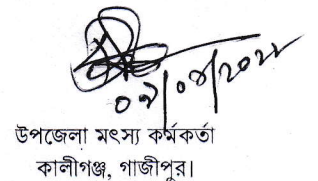 ০৯/০৪/২০২২
উপজেলা মৎস্য কর্মকর্তা
কালীগঞ্জ, গাজীপুর।